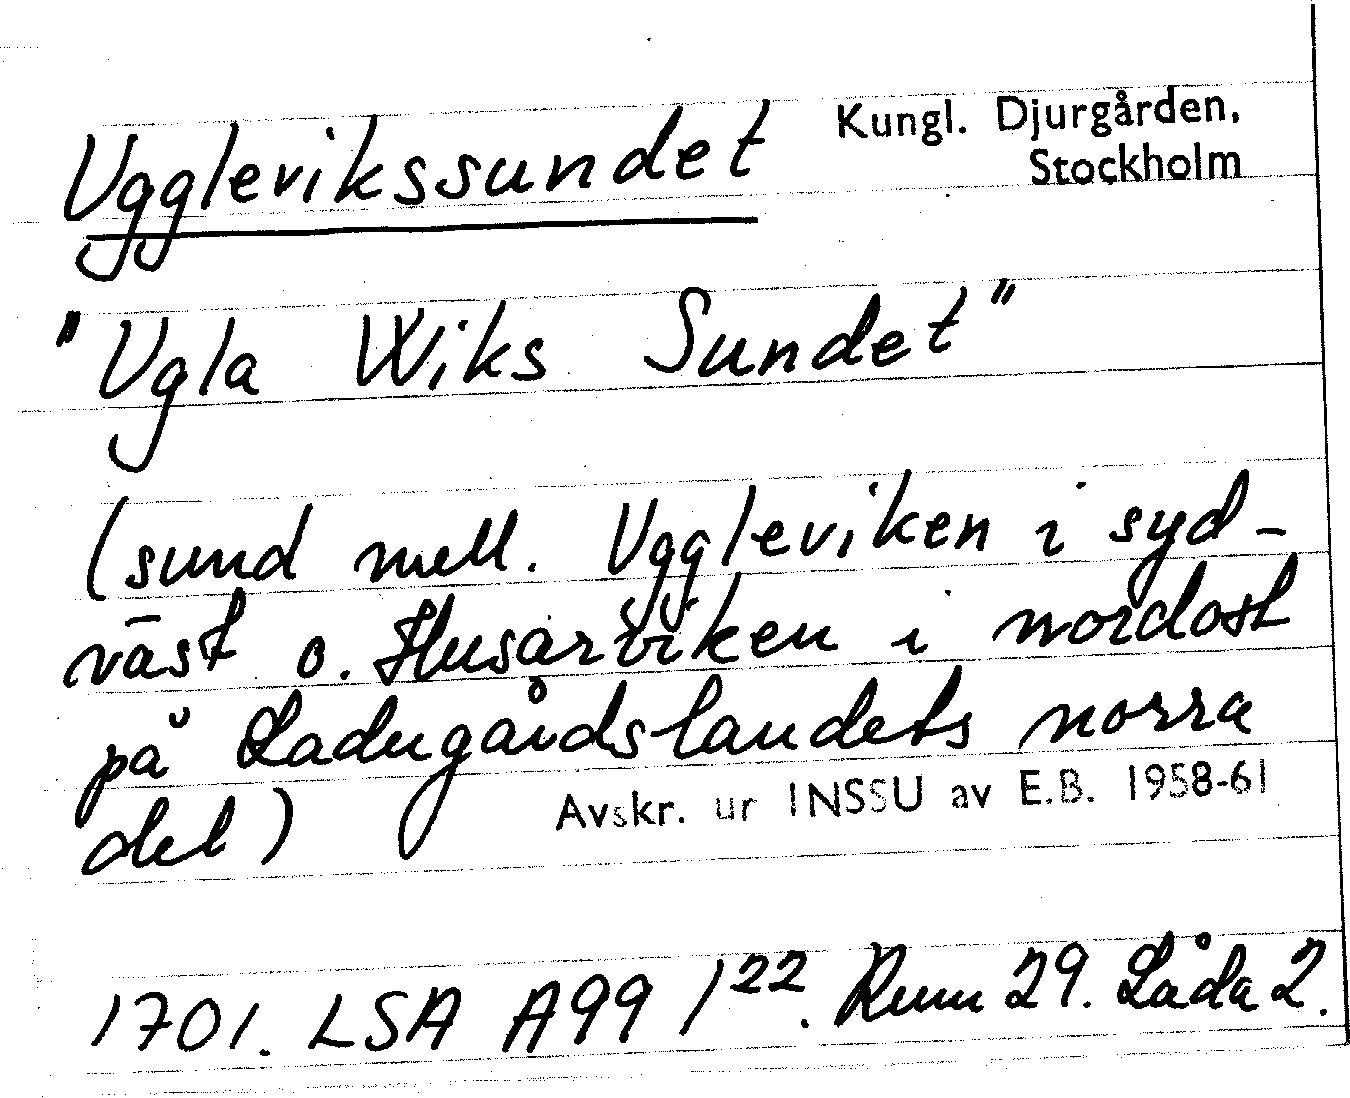 Ugglevikssundet
Kungl. Djurgården,
Stockholm
"Ugla Wiks Sundet"
(sund mell. Uggleviken i syd-
väst o. Husarviken i nordost
på Ladugårdslandets norra
del)
Avskr. ur INSSU av E.B. 1958-61
1701. LSA A99 1²². Rum 29. Låda 2.